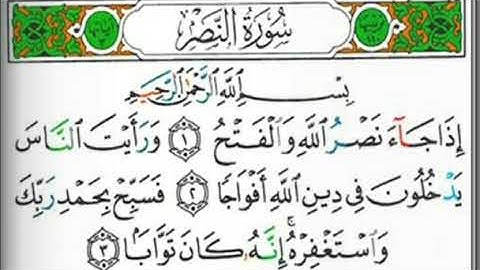 سُورَةُ النَّصْرِ
بِسْمِ اللَّهِ الرَّحْمَٰنِ الرَّحِيمِ
إِذَا جَآءَ نَصْرُ اللَّهِ وَالْفَتْحُ ١ وَرَأَيْتَ النَّاسَ
يَدْخُلُونَ فِي دِينِ اللَّهِ أَفْوَاجًا ٢ فَسَبِّحْ بِحَمْدِ رَبِّكَ
وَاسْتَغْفِرْهُ ۚ إِنَّهُ كَانَ تَوَّابًا ٣